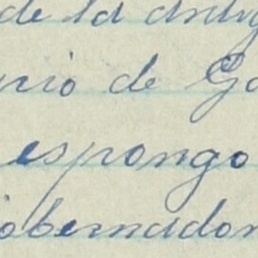 de la antig
rio de Go
espongo
obernador